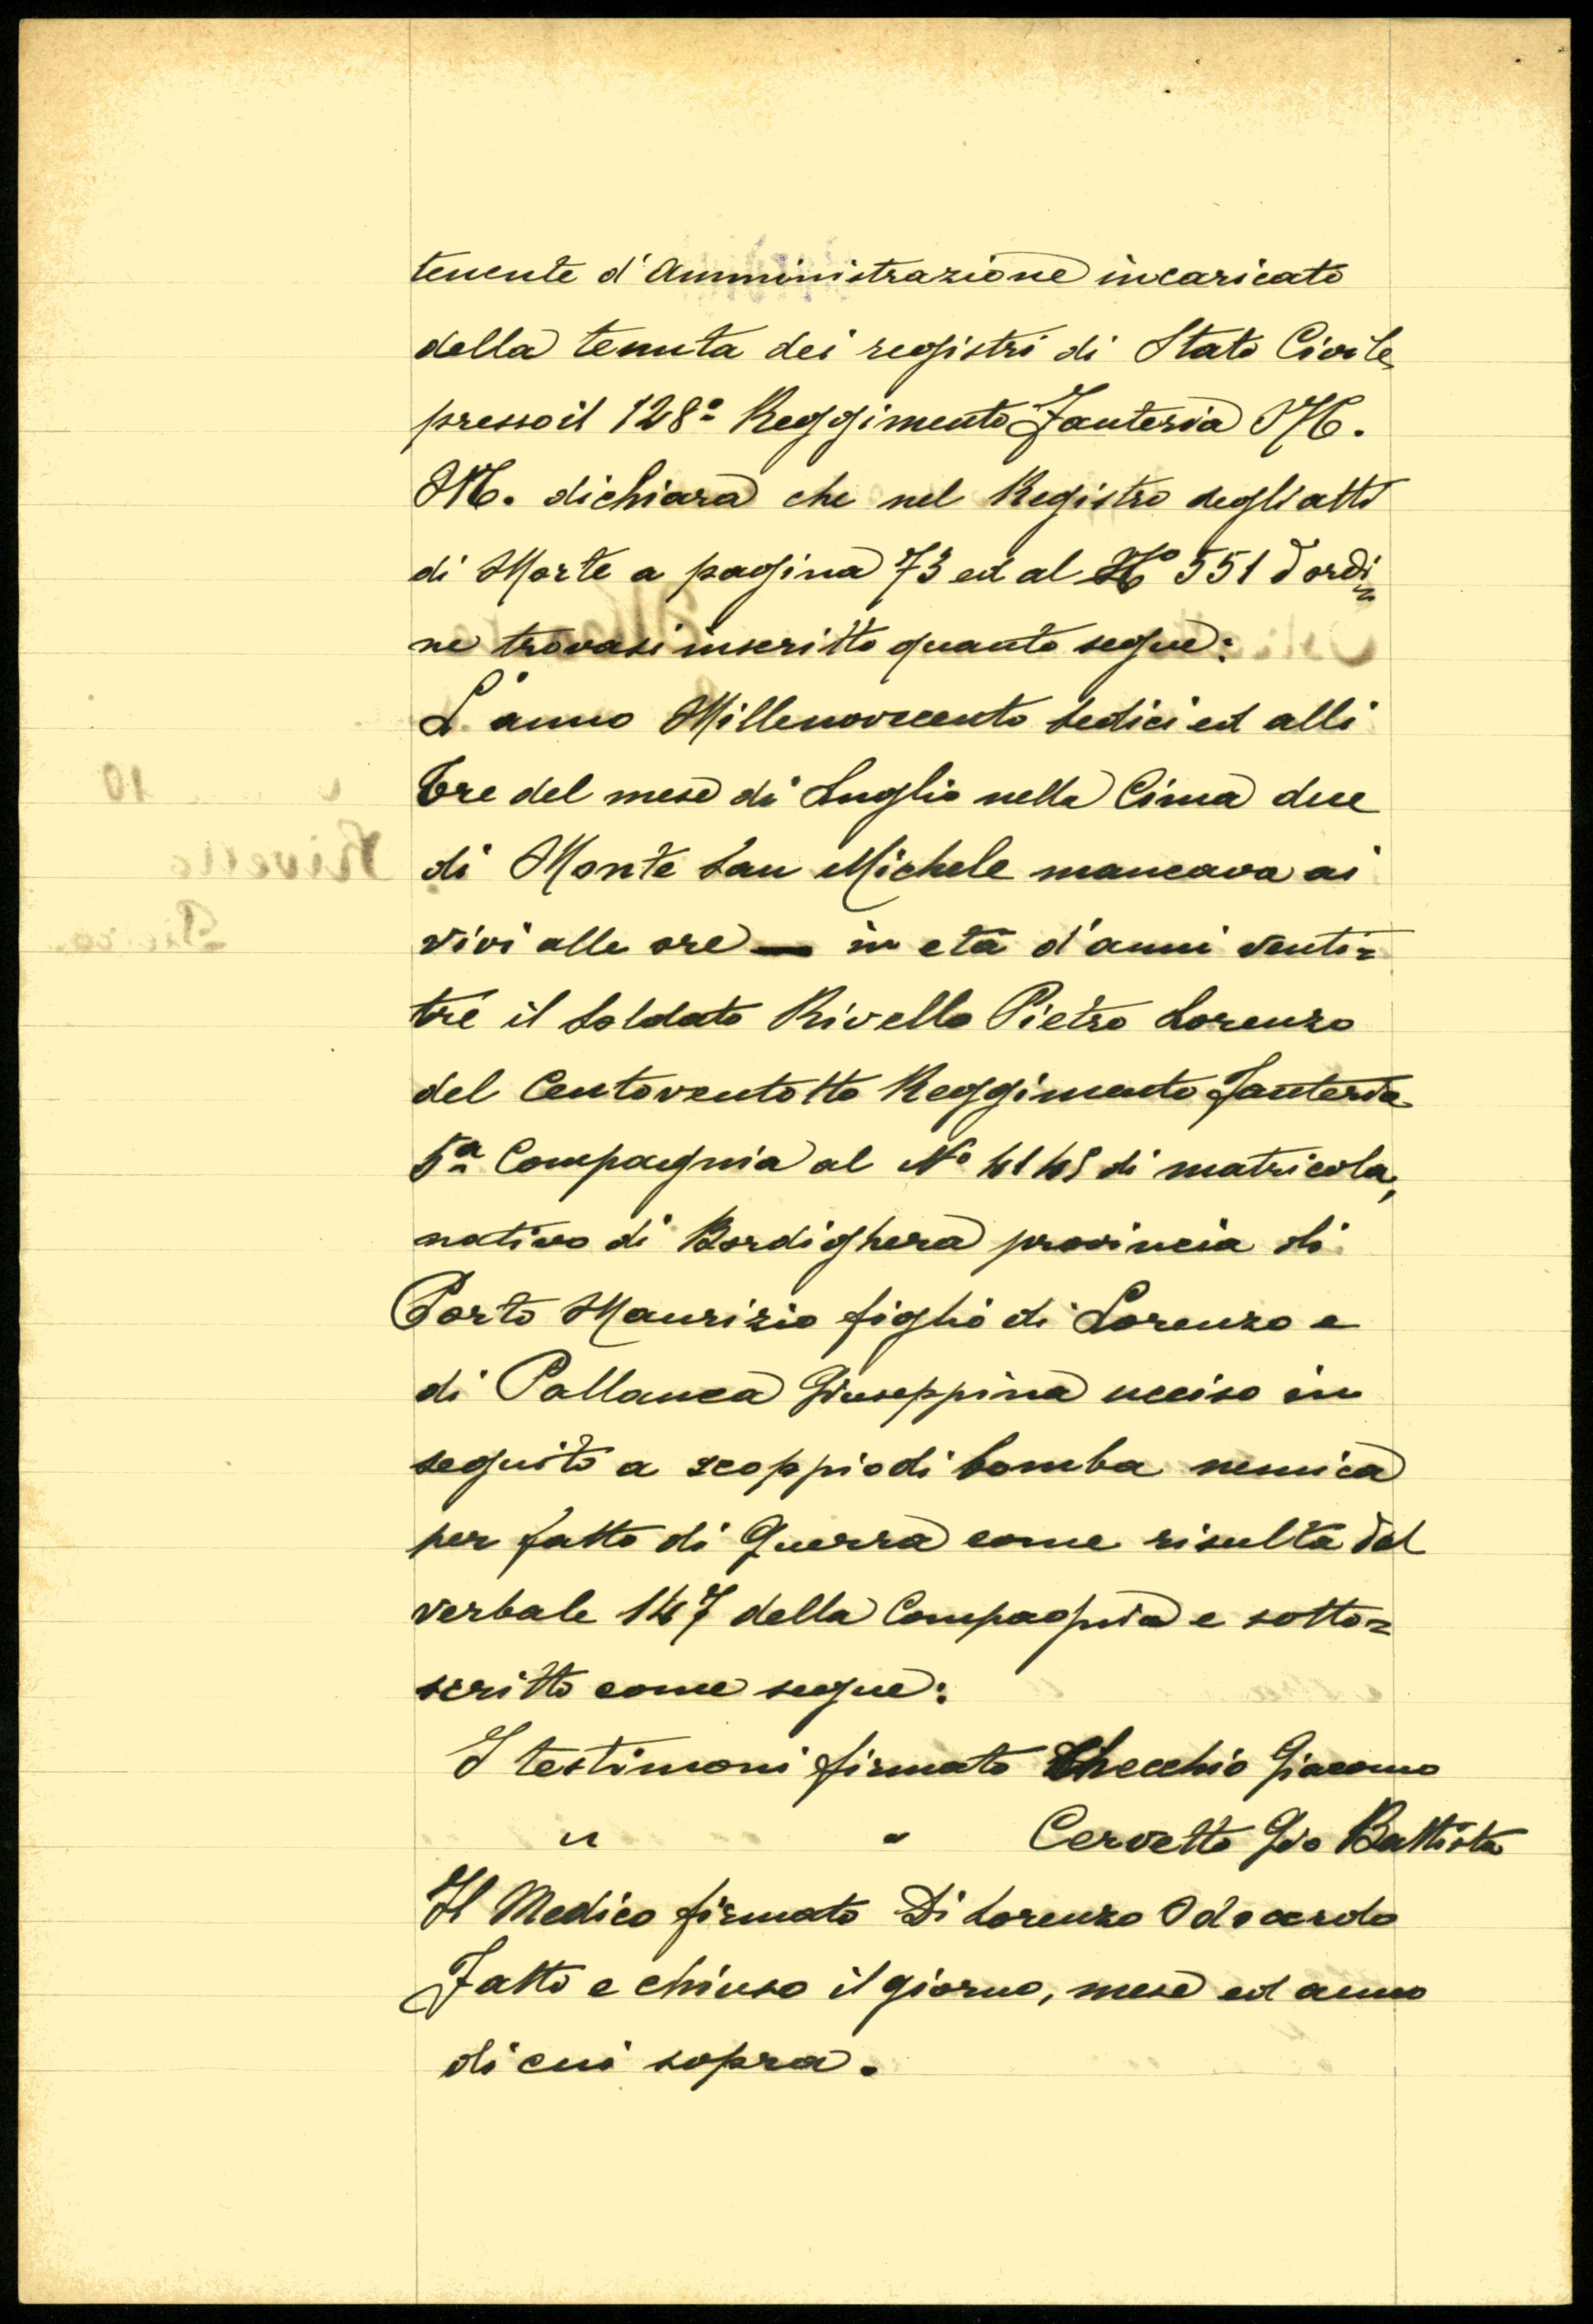 tenente d'Amministrazione incaricato
della tenuta dei registri di Stato Civile
presso il 128º Reggimento Fanteria M.
M. dichiara che nel Registro degli atti
di Morte a pagina 73 ed al Nº 551 d'ordi=
ne trovasi inscritto quanto segue:
L'anno Millenovecento sedici ed alli
tre del mese di Luglio nella Cima due
di Monte San Michele mancava ai
vivi alle ore — in età d'anni venti=
tré il Soldato Rivello Pietro Lorenzo
del Centoventotto Reggimento Fanteria
5ª Compagnia al Nº di matricola,
nativo di Bordighera provincia di
Porto Maurizio figlio di Lorenzo e
di Pallanca Giuseppina ucciso in
seguito a scoppio di bomba nemica
per fatto di Guerra come risulta dal
verbale 147 della Compagnia e sotto=
scritto come segue:
I testimoni firmato Checchio Giacomo
" " Cervetto Gio Battista
Il Medico firmato Di Lorenzo Odoardo
Fatto e chiuso il giorno, mese ed anno
di cui sopra.